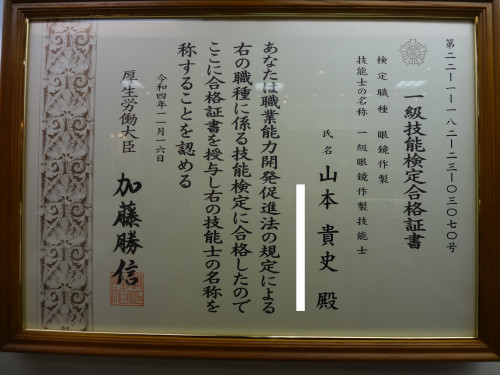 第二二-一-一八二-二三-〇三〇七〇号
一級技能検定合格証書
検定職種 眼鏡作製
技能士の名称 一級眼鏡作製技能士
氏名 山本貴史 殿
あなたは職業能力開発促進法の規定による
右の職種に係る技能検定に合格したので
ここに合格証書を授与し右の技能士の名称を
称することを認める
令和四年一一月一六日
厚生労働大臣 加藤勝信